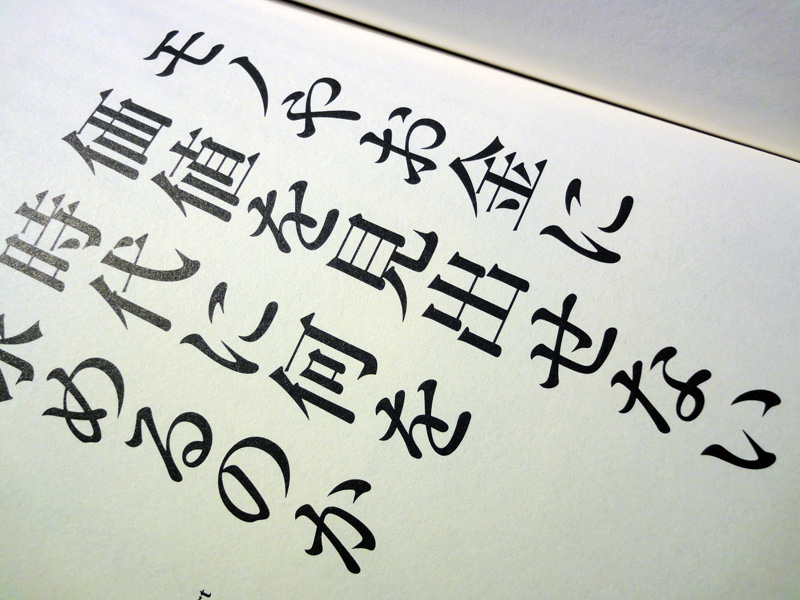 モノやお金に
価値を見出せない
時代に何を
求めるのか